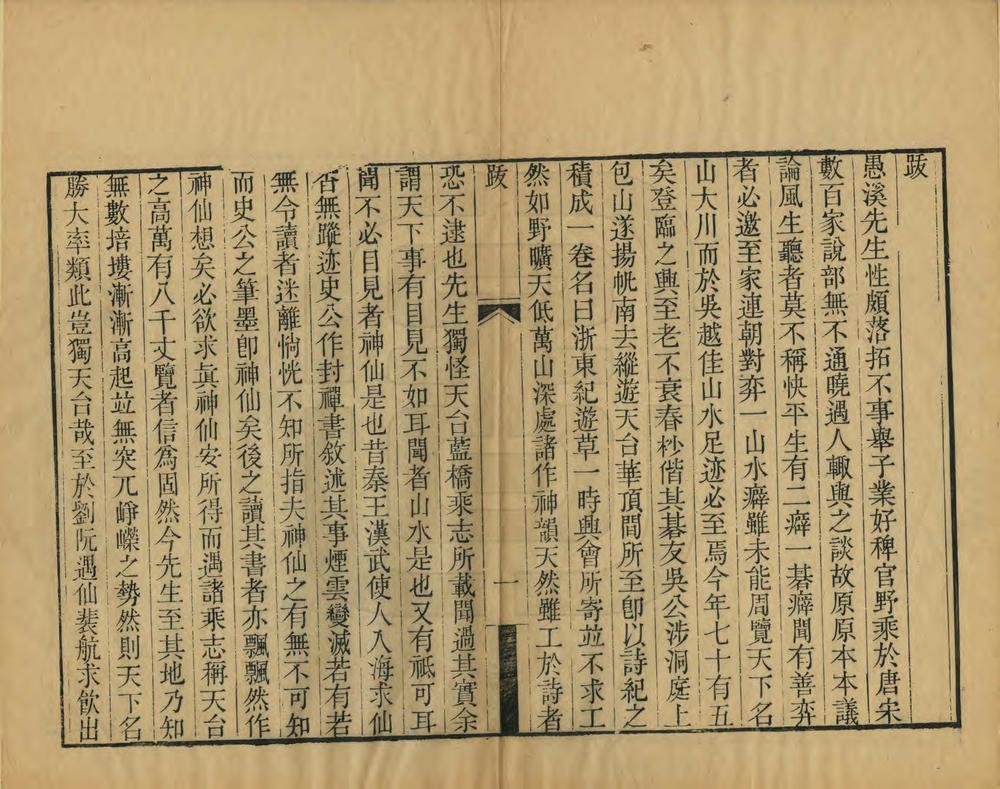 跋
愚溪先生性頗落拓不事舉子業好稗官野乘於唐宋
數百家說部無不通曉遇人輒與之談故原原本本議
論風生聽者莫不稱快平生有二癖一碁癖聞有善弈
者必邀至家連朝對弈一山水癖雖未能周覽天下名
山大川而於吳越佳山水足迹必至焉今年七十有五
矣登臨之興至老不衰春杪偕其碁友吳公涉洞庭上
包山遂揚帆南去縱遊天台華頂間所至卽以詩紀之
積成一卷名曰浙東紀遊草一時興會所寄並不求工
然如野曠天低萬山深處諸作神韻天然雖工於詩者
跋
一
恐不逮也先生獨怪天台藍橋乘志所載聞過其實余
謂天下事有目見不如耳聞者山水是也又有祗可耳
聞不必目見者神仙是也昔秦王漢武使人入海求仙
杳無蹤迹史公作封禪書敘述其事煙雲變滅若有若
無令讀者迷離惝恍不知所指夫神仙之有無不可知
而史公之筆墨卽神仙矣後之讀其書者亦飄飄然作
神仙想矣必欲求眞神仙安所得而遇諸乘志稱天台
之高萬有八千丈覽者信爲固然今先生至其地乃知
無數培塿漸漸高起並無突兀崢嶸之勢然則天下名
勝大率類此豈獨天台哉至於劉阮遇仙裴航求飮出